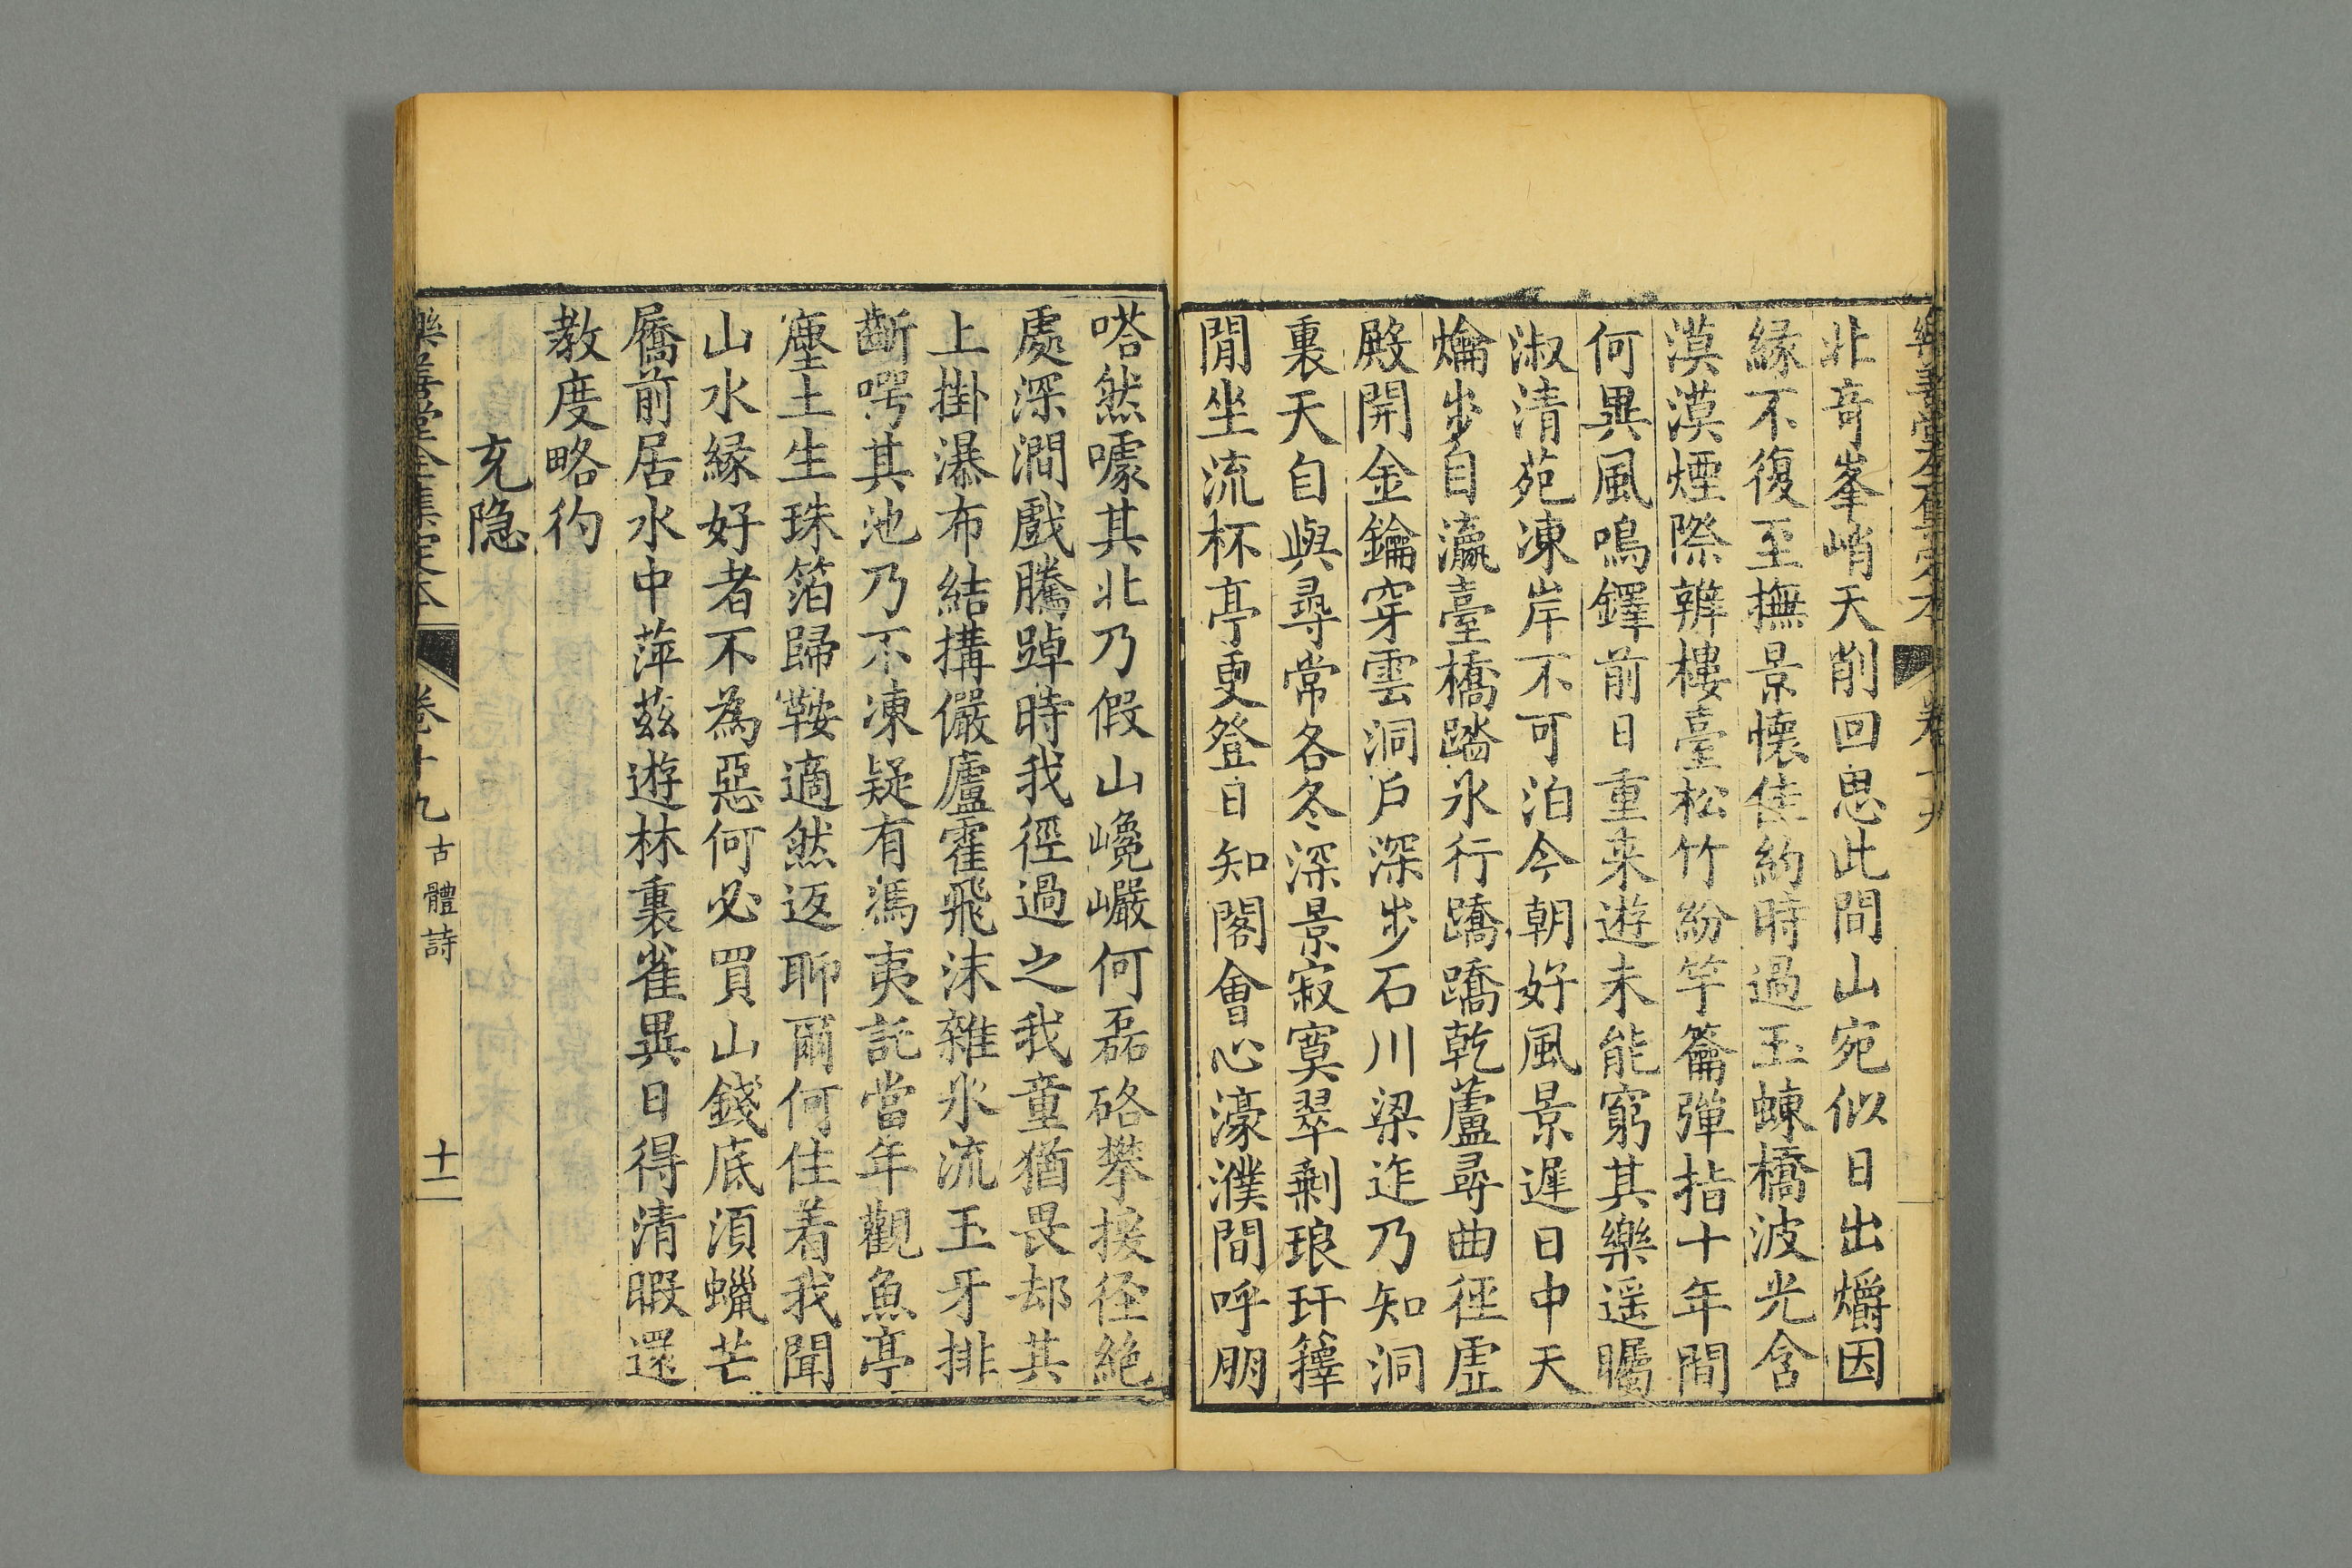 樂善堂全集定本 卷十九
北奇峯峭天削回思此間山宛似日出爝因
緣不復至撫景懷佳約時過玉蝀橋波光含
漠漠煙際辨樓臺松竹紛竽籥彈指十年間
何異風鳴鐸前日重来遊未能窮其樂遥矚
淑清苑凍岸不可泊今朝好風景遲日中天
爚步自瀛臺橋踏氷行蹻蹻乾蘆尋曲徑虛
殿開金鑰穿雲洞戶深步石川梁迮乃知洞
裏天自與尋常各冬深景寂寞翠剩琅玕籜
閒坐流杯亭更登日知閣會心濠濮間呼朋
嗒然噱其北乃假山巉巖何磊硌攀接径絶
處深澗戲騰踔時我徑過之我童猶畏却其
上掛瀑布結搆儼廬霍飛沫雜氷流玉牙排
齗咢其池乃不凍疑有馮夷託當年觀魚亭
塵土生珠箔歸鞍適然返聊爾何佳着我聞
山水緣好者不為惡何必買山錢底湏蠟芒
屩前居水中萍茲遊林裏雀異日得清暇還
教度略彴
充隐
樂善堂全集定本 卷十九 古體詩 十二